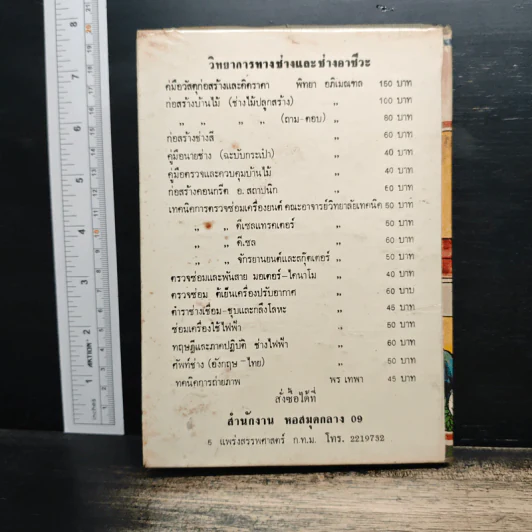 วิทยาการทางช่างและช่างอาชีวะ
คู่มือวัสดุก่อสร้างและคิดราคา พิทยา อภิเมณฑล 150 บาท
ก่อสร้างบ้านไม้ (ช่างไม้ปลูกสร้าง) ,, 100 บาท
,, ,, ,, ,, (ถาม-ตอบ) ,, 80 บาท
ก่อสร้างช่างสี ,, 60 บาท
คู่มือนายช่าง (ฉะบับกระเป๋า) ,, 40 บาท
คู่มือตรวจและควบคุมบ้านไม้ ,, 40 บาท
ก่อสร้างคอนกรีต อ. สถาปนิก ,, 60 บาท
เทคนิคการตรวจซ่อมเครื่องยนต์ คณะอาจารย์วิทยาลัยเทคนิค 50 บาท
,, ,, ดีเซลแทรคเตอร์ ,, 50 บาท
,, ,, ดีเซล ,, 60 บาท
,, ,, จักรยานยนต์และสกู๊ตเตอร์ ,, 50 บาท
ตรวจซ่อมและพันสาย มอเตอร์-ไดนาโม ,, 40 บาท
ตรวจซ่อม ตู้เย็นเครื่องปรับอากาศ ,, 60 บาบ
ตำราช่างเชื่อม-ชุบและกลึงโลหะ ,, 45 บาท
ซ่อมเครื่องใช้ไฟฟ้า ,, 50 บาท
ทฤษฎีและภาคปฏิบัติ ช่างไฟฟ้า ,, 60 บาท
ศัพท์ช่าง (อังกฤษ-ไทย) ,, 50 บาท
ทคนิคการถ่ายภาพ พร เทพา 45 บาท
สั่งซื้อได้ที่
สำนักงาน หอสมุดกลาง 09
5 แพร่งสรรพศาสตร์ ก.ท.ม. โทร. 2219732
8
7
6
5
4
3
2
1